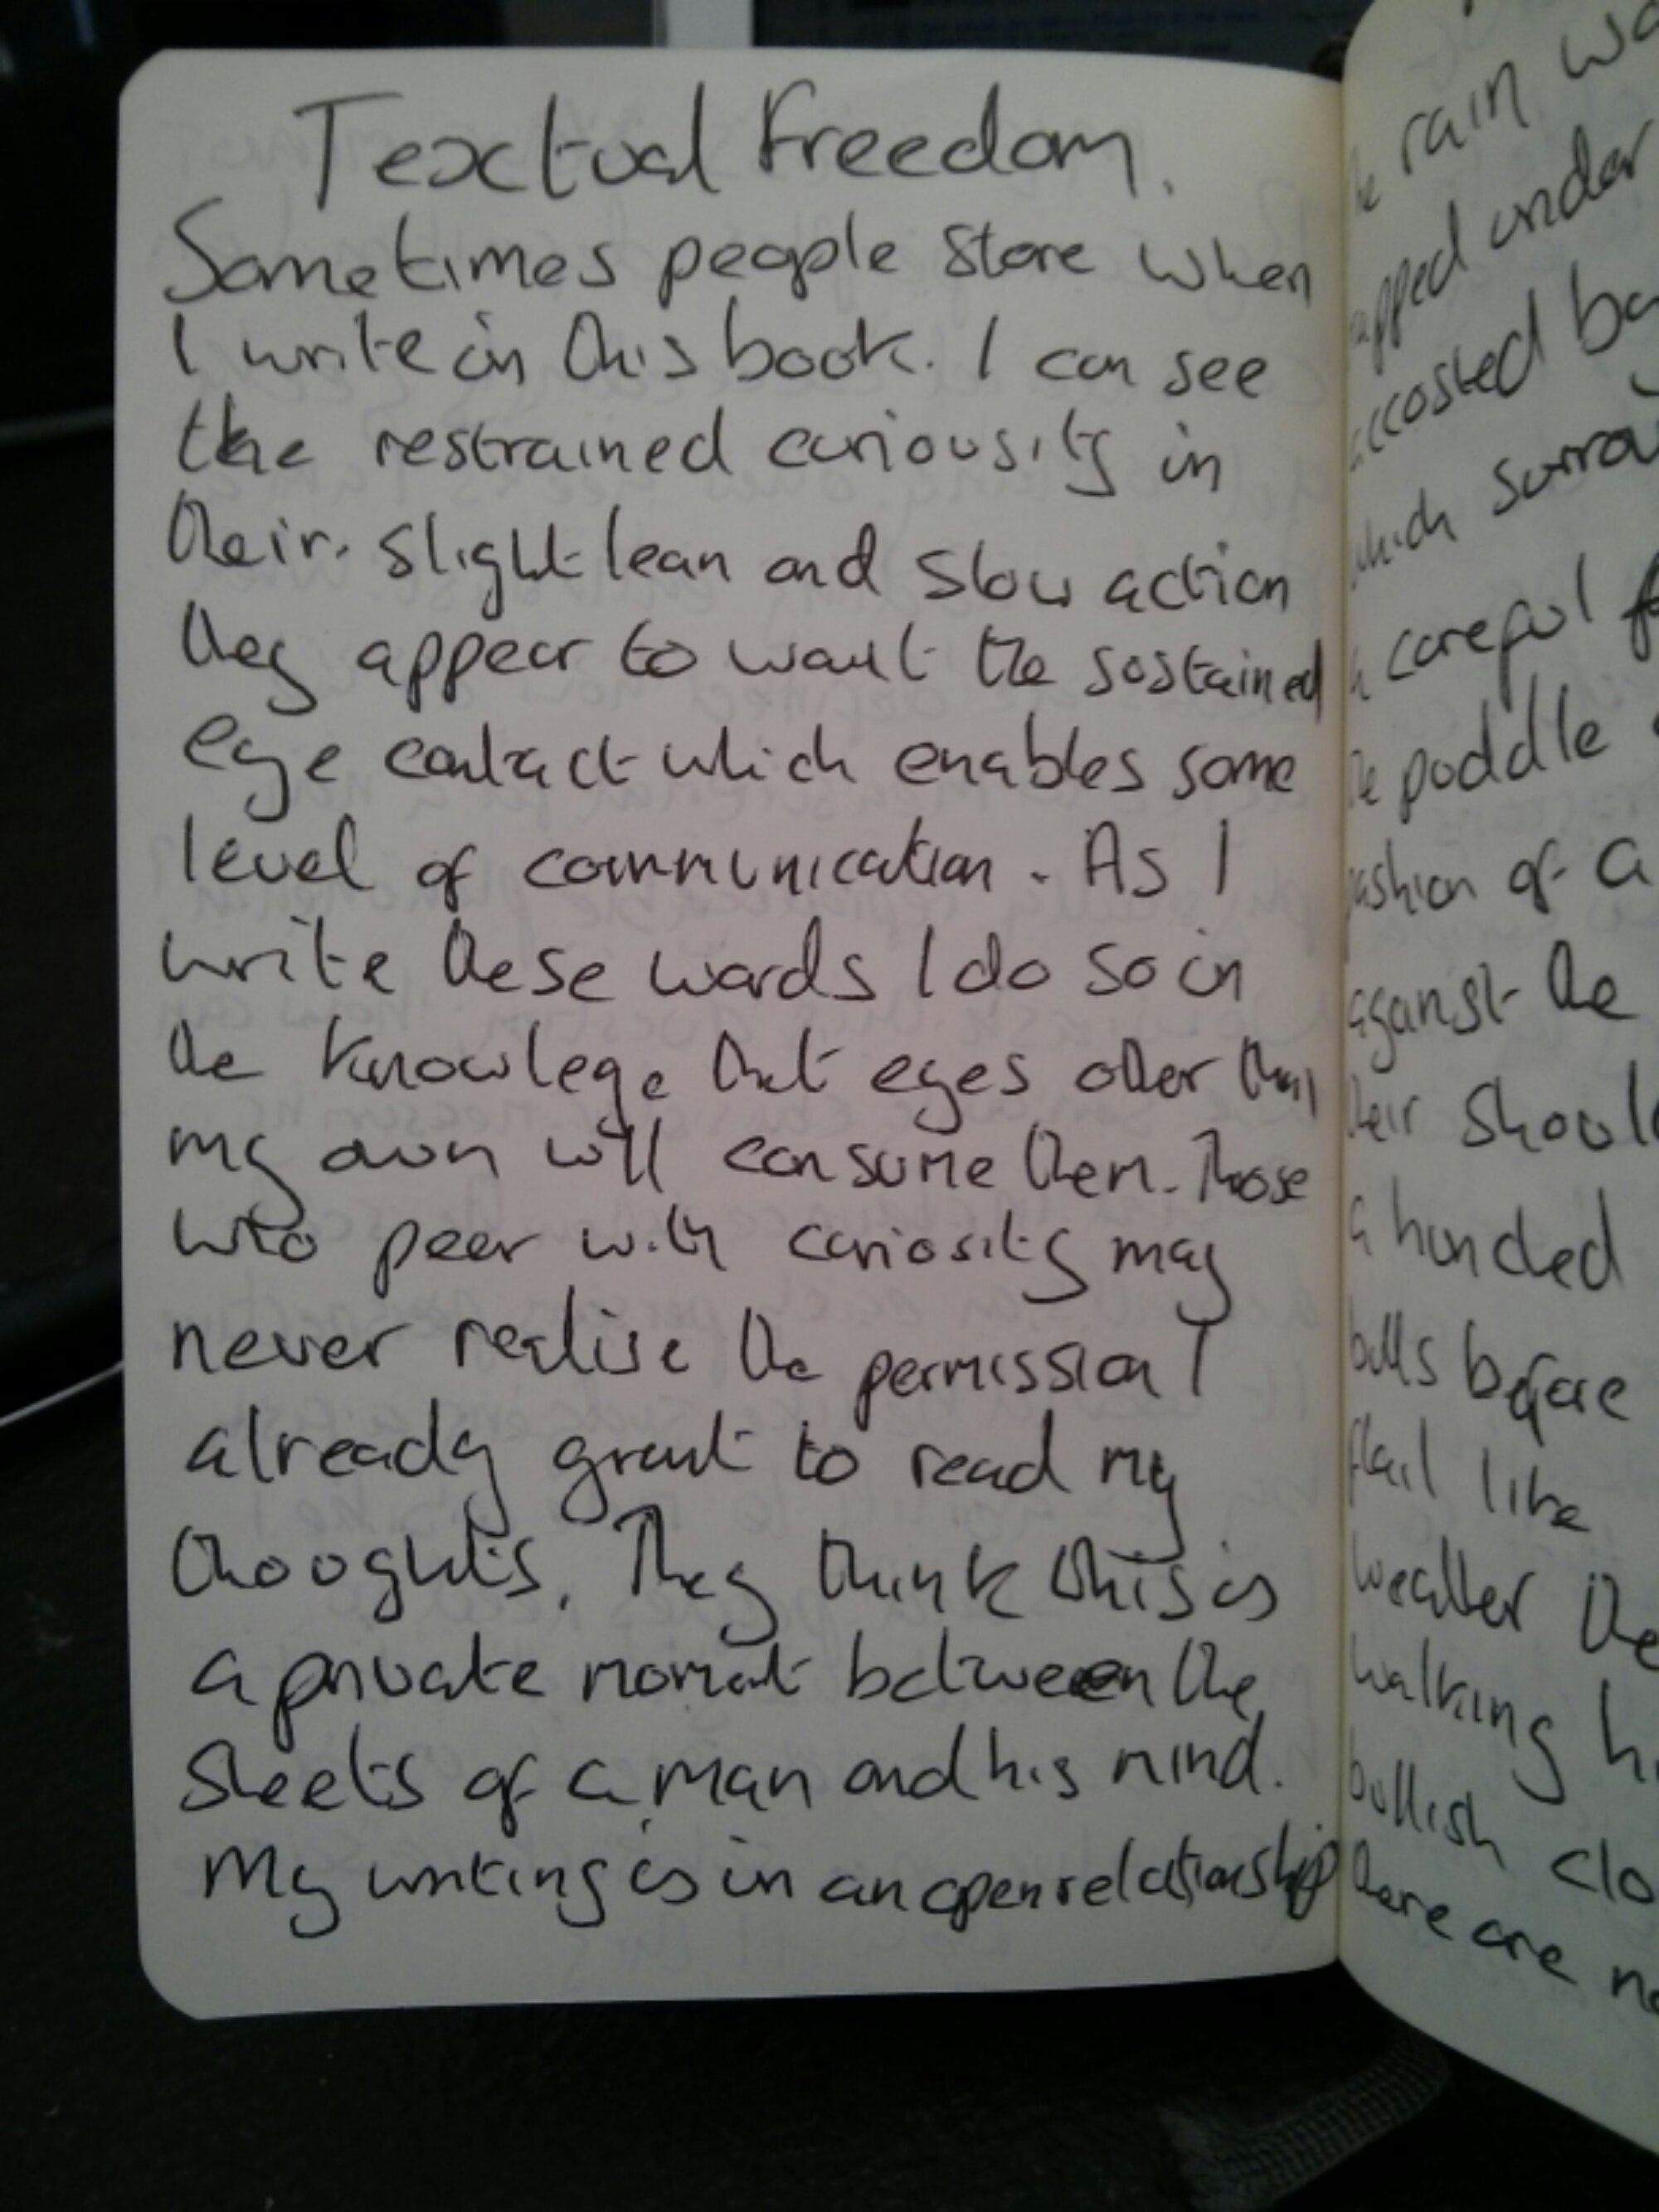 Textual Freedom.
Sometimes people stare when
I write in this book. I can see
the restrained curiousity in
their slight lean and slow action
they appear to want the sustained
eye contact which enables some
level of communication. As I
write these words I do so in
the knowlege that eyes other than
my own will consume them. Those
who peer with curiosity may
never realise the permission I
already grant to read my
thoughts. They think this is
a private moment between the
sheets of a man and his mind.
My writing is in an open relationship
rain
under
accosted
which
careful
puddle
of a
against the
their
a hundred
bulls before
flail like
weather the
walking
bullish
there are